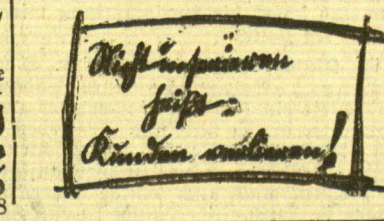 Nicht inserieren
heißt:
Kunden verlieren!
8